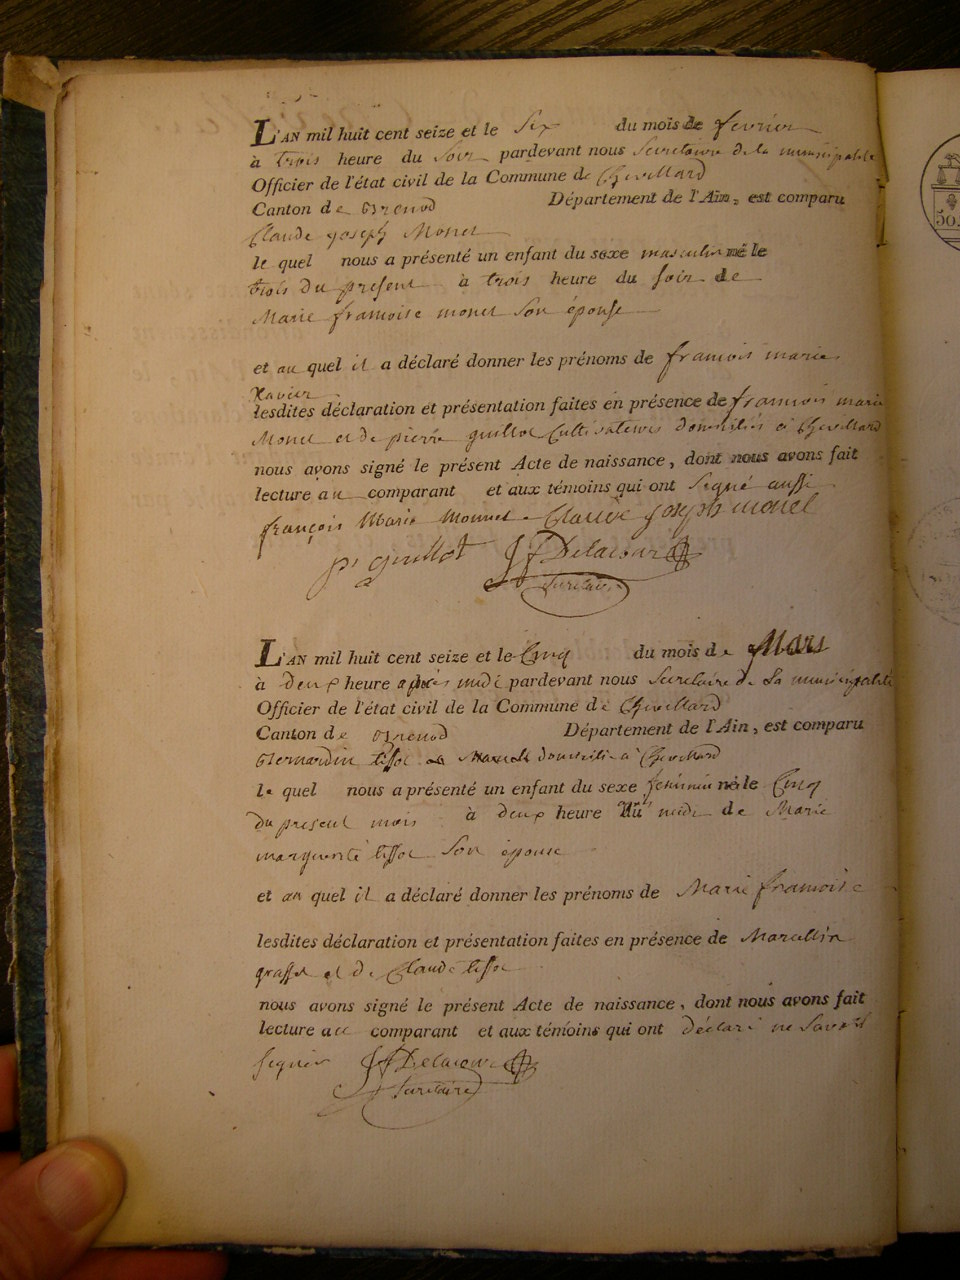 L'AN mil huit cent seize et le Six du mois de fevrier
à trois heure du Soir pardevant nous Secretaire de la municipalité
Officier de l'état civil de la Commune de Chevillard
Canton de Brenod Département de l'Ain, est comparu
Claude joseph Monet
le quel nous a présenté un enfant du sexe masculin né le
trois du present à trois heure du soir de
Marie framoise monet Son épouse
et au quel il a déclaré donner les prénoms de framois marie
Xavier
lesdites déclaration et présentation faites en présence de framois marie
Monet et de pierre guillot Cultivateurs domiciliés à Chevillard
nous avons signé le présent Acte de naissance, dont nous avons fait
lecture au comparant et aux témoins qui ont Signé aussi
françois Marie Monnet Claude Joseph monet
pr guillot JF Delacour
Secretaire
L'AN mil huit cent seize et le Cinq du mois de Mars
à deux heure après midi pardevant nous Secretaire de La municipalité
Officier de l'état civil de la Commune de Chevillard
Canton de Brenod Département de l'Ain, est comparu
Bernardin tissot domicilié à Chevillard
le quel nous a présenté un enfant du sexe feminin né le Cinq
du present mois à deux heure midi de Marie
marguerite tissot Son épouse
et au quel il a déclaré donner les prénoms de Marie framoise
lesdites déclaration et présentation faites en présence de Marcellin
grasset et de Claude tissot
nous avons signé le présent Acte de naissance, dont nous avons fait
lecture au comparant et aux témoins qui ont déclaré ne Savoir
signer JF Delacour
Secretaire
50